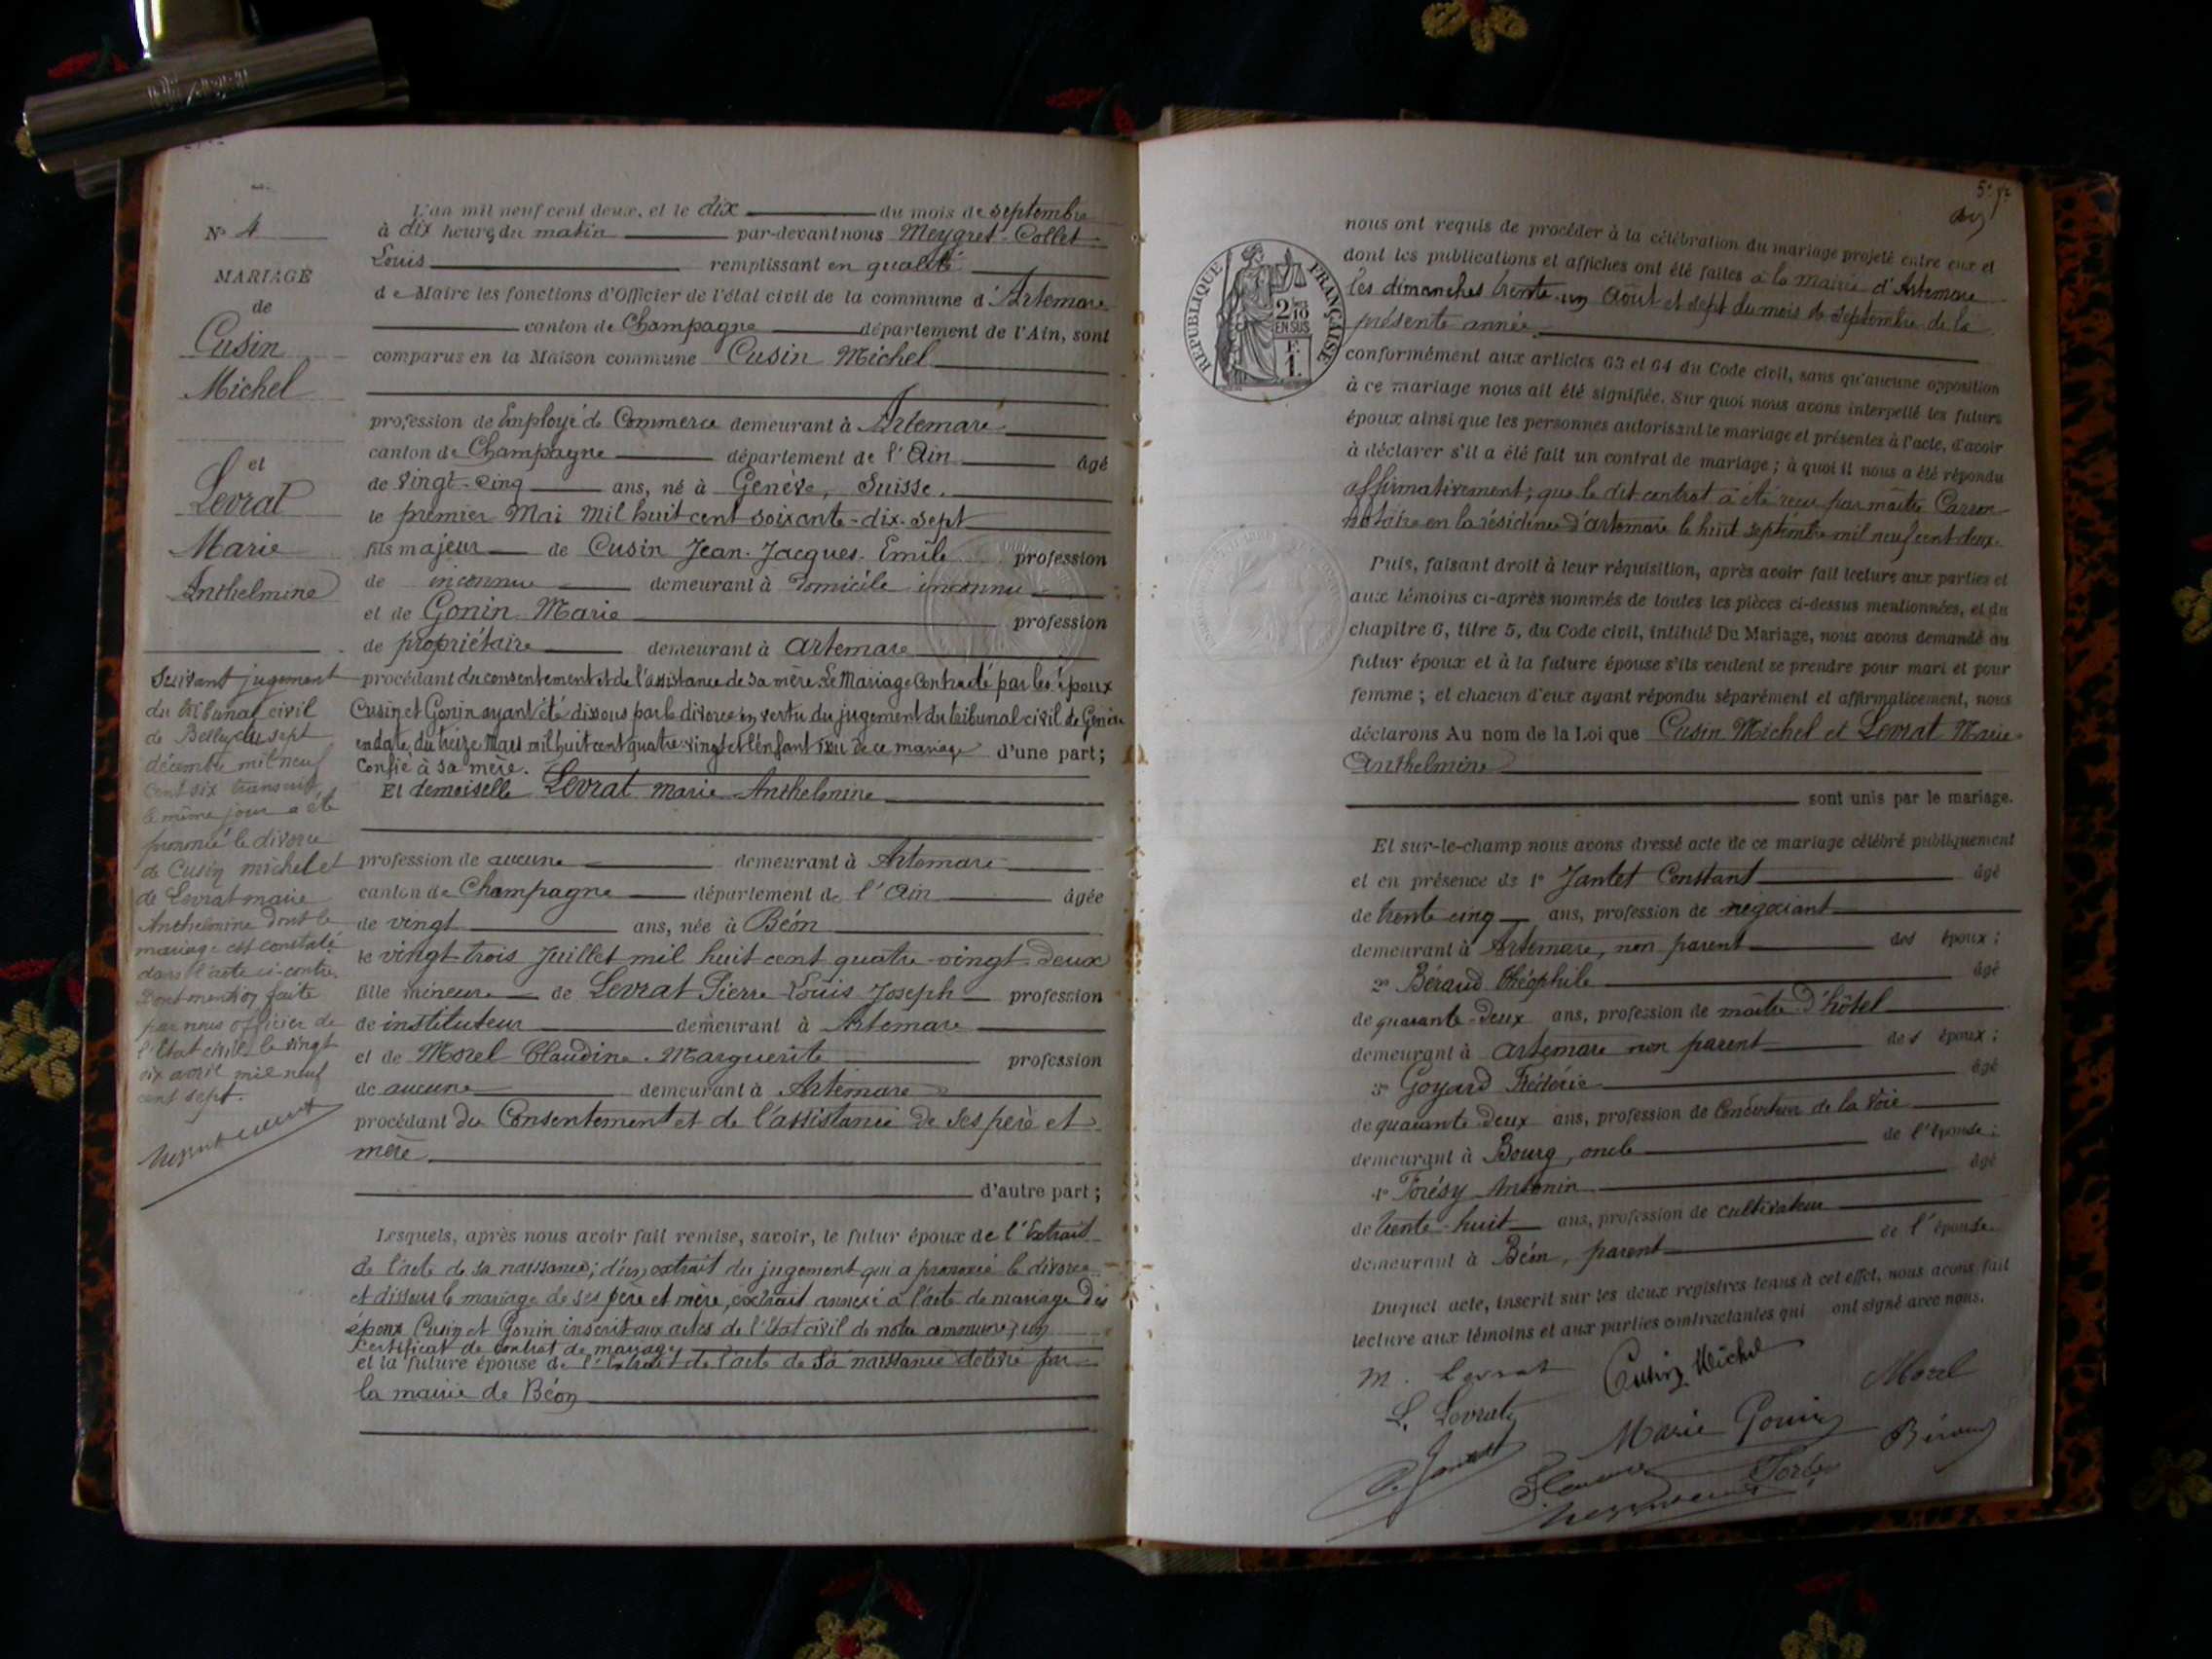 N° 4
MARIAGE
de
Cusin
Michel
et
Levrat
Marie
Anthelmine
Suivant jugement
du tribunal civil
de Belley du sept
décembre mil neuf
cent six transcrit
le même jour a été
prononcé le divorce
de Cusin Michel et
de Levrat marie
Anthelmine dont le
mariage est constaté
dans l'acte ci-contre.
Dont mention faite
par nous officier de
l'Etat civil le vingt
six avril mil neuf
cent sept.
L'an mil neuf cent deux, et le dix du mois de septembre
à dix heures du matin par-devant nous Meygret-Collet
Louis remplissant en qualité
de Maire les fonctions d'Officier de l'état civil de la commune d'Artemare
canton de Champagne département de l'Ain, sont
comparus en la Maison commune Cusin Michel
profession de Employé de Commerce demeurant à Artemare
canton de Champagne département de l'Ain âgé
de vingt-cinq ans, né à Genève, Suisse.
le premier Mai mil huit cent soixante-dix-sept
fils majeur de Cusin Jean-Jacques-Emile profession
de inconnue demeurant à Domicile inconnu
et de Gonin Marie profession
de propriétaire demeurant à Artemare
procédant du consentement et de l'assistance de sa mère. Le Mariage Contracté par les époux
Cusin et Gonin ayant été dissous par le divorce en vertu du jugement du tribunal civil de Genève
en date du treize Mars mil huit cent quatre-vingt et l'enfant issu de ce mariage d'une part;
Confié à sa mère.
Et demoiselle Levrat marie Anthelmine
profession de aucune demeurant à Artemare
canton de Champagne département de l'Ain âgée
de vingt ans, née à Béon
le vingt-trois Juillet mil huit cent quatre-vingt-deux
fille mineure de Levrat Pierre Louis Joseph profession
de instituteur demeurant à Artemare
et de Morel Claudine-Marguerite profession
de aucune demeurant à Artemare
procédant du Consentement et de l'assistance de ses père et
mère
d'autre part;
Lesquels, après nous avoir fait remise, savoir, le futur époux de l'Extrait
de l'acte de sa naissance; d'un extrait du jugement qui a prononcé le divorce
et dissous le mariage de ses père et mère, extrait annexé à l'acte de mariage des
époux Cusin et Gonin inscrit aux actes de l'Etat civil de notre commune; un
certificat de contrat de mariage
et la future épouse de l'Extrait de l'acte de sa naissance délivré par
la mairie de Béon
nous ont requis de procéder à la célébration du mariage projeté entre eux et
dont les publications et affiches ont été faites à la Mairie d'Artemare
les dimanches trente-un Août et sept du mois de septembre de la
présente année
conformément aux articles 63 et 64 du Code civil, sans qu'aucune opposition
à ce mariage nous ait été signifiée. Sur quoi nous avons interpellé les futurs
époux ainsi que les personnes autorisant le mariage et présentes à l'acte, d'avoir
à déclarer s'il a été fait un contrat de mariage; à quoi il nous a été répondu
affirmativement; que le dit contrat a été reçu par maître Carron
notaire en la résidence d'Artemare le huit septembre mil neuf cent deux.
RÉPUBLIQUE FRANÇAISE
2/10
EN SUS
F.
1.
Puis, faisant droit à leur réquisition, après avoir fait lecture aux parties et
aux témoins ci-après nommés de toutes les pièces ci-dessus mentionnées, et du
chapitre 6, titre 5, du Code civil, intitulé Du Mariage, nous avons demandé au
futur époux et à la future épouse s'ils veulent se prendre pour mari et pour
femme; et chacun d'eux ayant répondu séparément et affirmativement, nous
déclarons Au nom de la Loi que Cusin Michel et Levrat Marie-
Anthelmine
sont unis par le mariage.
Et sur-le-champ nous avons dressé acte de ce mariage célébré publiquement
et en présence de 1° Jantet Constant âgé
de trente cinq ans, profession de negociant
demeurant à Artemare, non parent des époux;
2° Béraud Théophile âgé
de quarante-deux ans, profession de maître d'hôtel
demeurant à Artemare non parent des époux;
3° Goyard Frédéric âgé
de quarante-deux ans, profession de Conducteur de la voie
demeurant à Bourg, oncle de l'épouse;
4° Forésy Antonin âgé
de trente-huit ans, profession de cultivateur
demeurant à Béon, parent de l'épouse.
Duquel acte, inscrit sur les deux registres tenus à cet effet, nous avons fait
lecture aux témoins et aux parties contractantes qui ont signé avec nous.
M. Levrat Cusin Michel Morel
L. Levrat Marie Gonin Béraud
C. Jantet